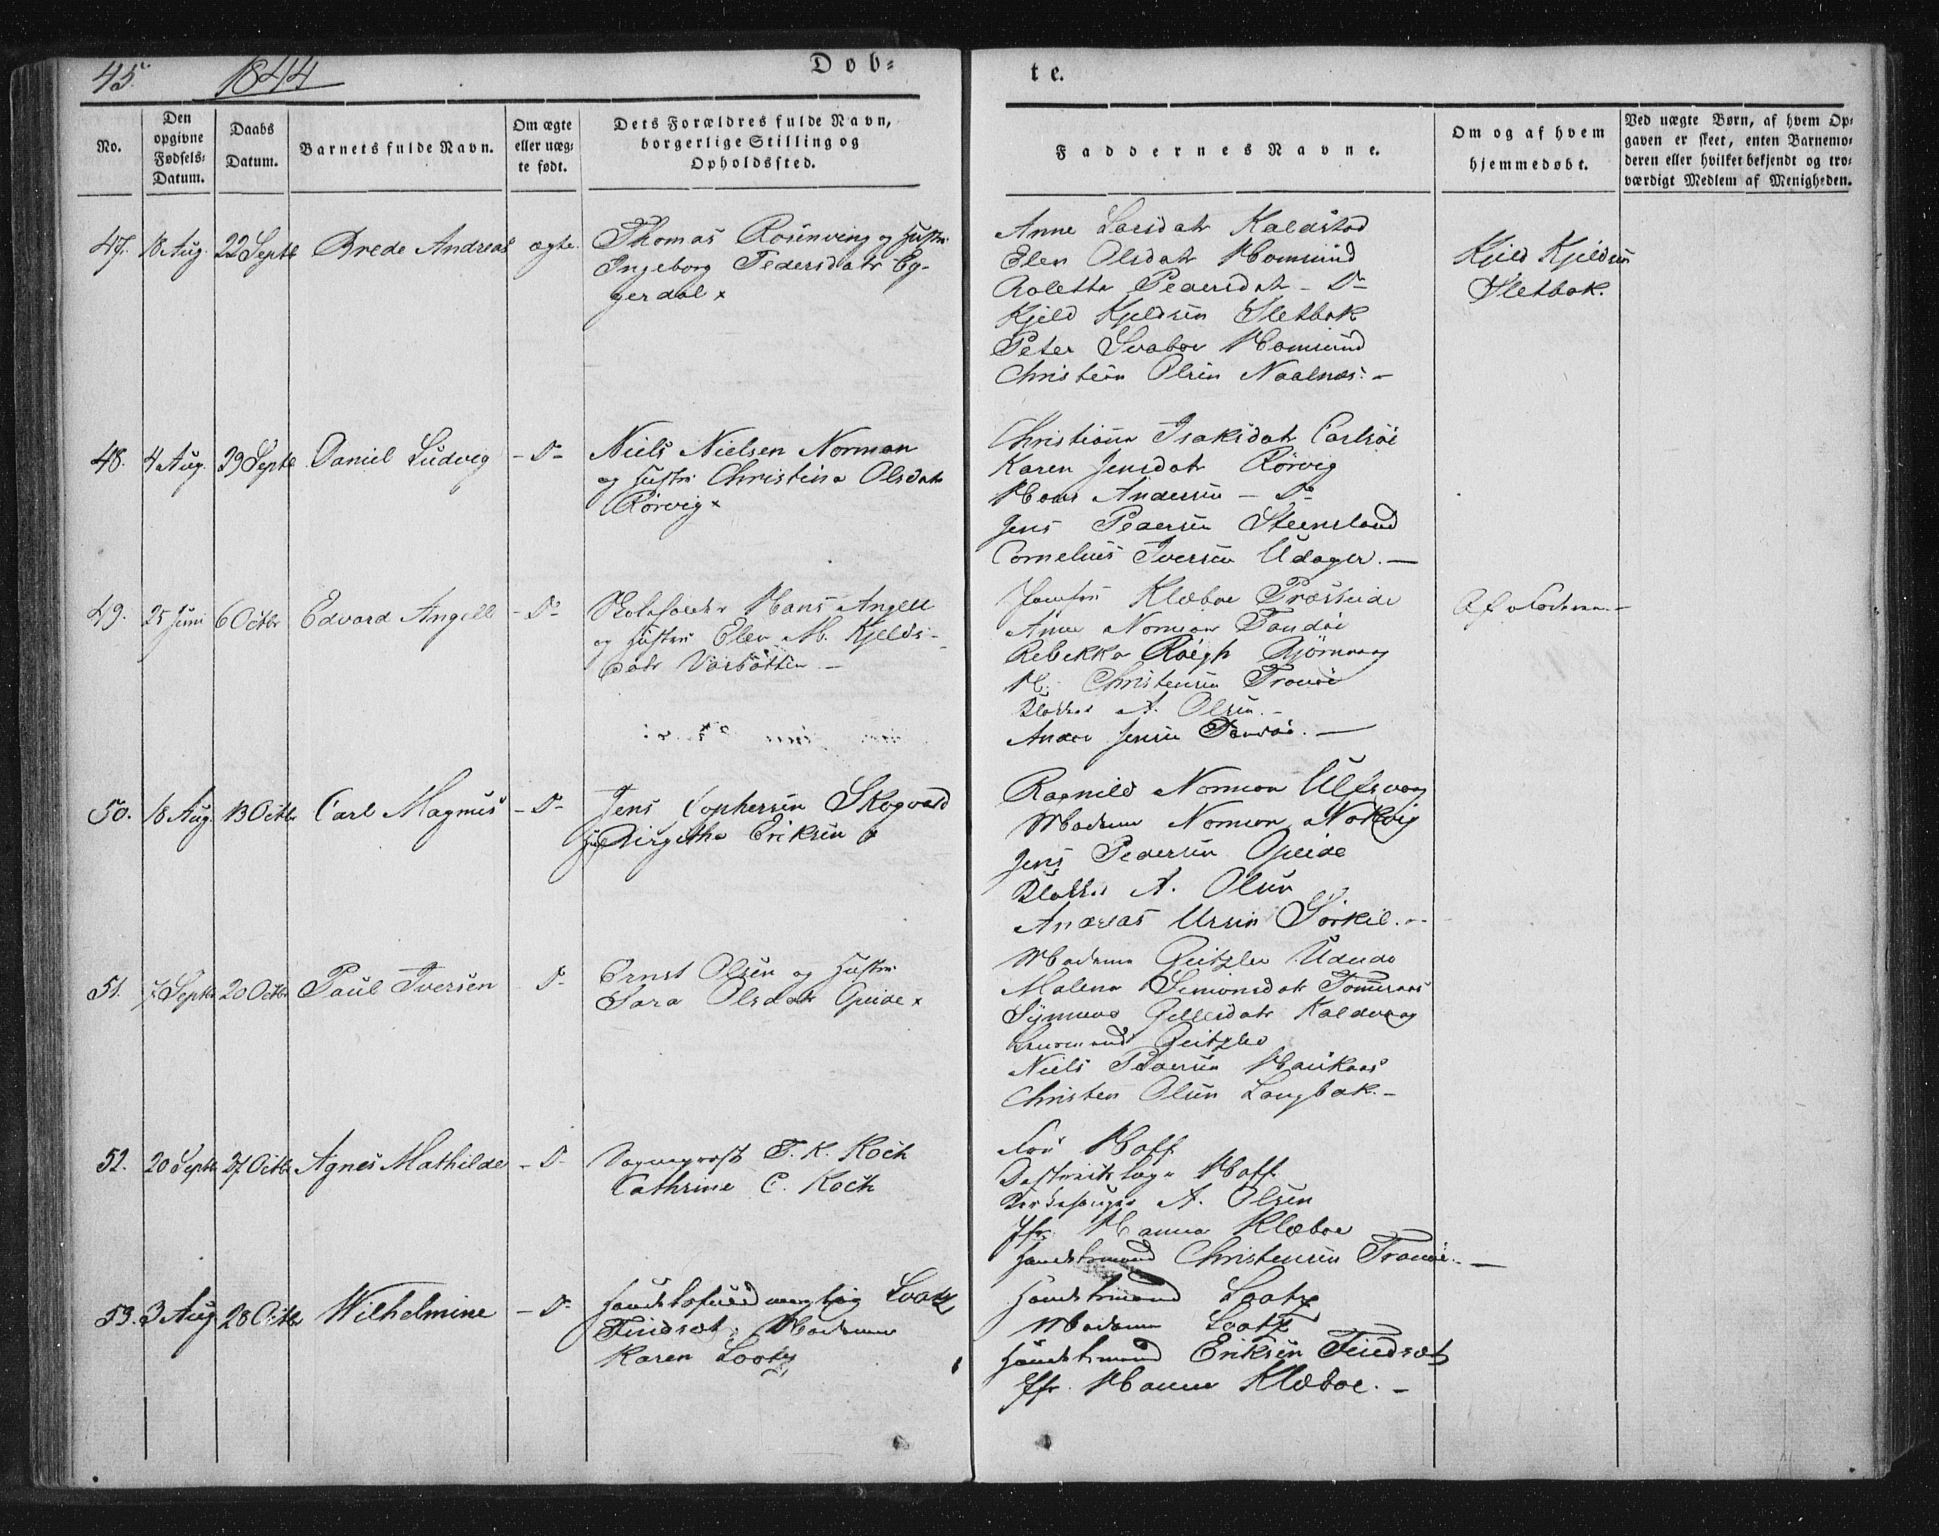 45. 1844 Dob-
te.
No.
Den opgivne Fødsels-Datum.
Daabs Datum.
Barnets fulde Navn.
Om ægte eller uæg-te født.
Dets Forældres fulde Navn, borgerlige Stilling og Opholdssted.
Faddernes Navne.
Om og af hvem hjemmedøbt.
Ved uægte Børn, af hvem Op-gaven er skeet, enten Barnemo-deren eller hvilket bekjendt og tro-værdigt Medlem af Menigheden.
47. 18 Aug. 22 Septb Brede Andreas ægte.
Thomas Rosenving og Hustru
Ingeborg Pedersdatr
Anne Larsdatr Kaldstad
Elen Olsdatr Homsund
Rolette Pedersdat - Do
Kjeld Kjeldsen Sletbak
Peter Svaboe Homsund
Christian Olsen Naalnæs. -
Kjeld Kjeldsen
Sletbak.
48. 4 Aug. 29 Septb Daniel Ludvig - Do
Niels Nielsen Norman
og Hustru Christina Olsdatr
Rørvig x
Christianna Isaksdatr Carlsøe
Karen Jensdatr Rørvig
Hans Andersen - Do
Jens Pedersen Steensland
Cornelius Iversen Udager. -
49. 25 Juni 6 Octbr Edvard Angell - Do
Hans Angell
og Hustru Elen M. Kjelds-
datr -
Klæboe
Anne Norman Tandøe
Rebekka
H. Christensen Tranøe
Klokker A. Olsen. -
Jensen -
50. 18 Aug. 13 Octbr Carl Magnus - Do
Jens Tophersen Skogvold
Birgitha Eriksen x
Ragnild Norman Ulfsvaag
Madame Norman Nokvig
Jens Pedersen Gjeide
Klokker A. Olsen
Andreas Ursin Sørkil. -
51. 7 Septb 20 Octbr Paul Iversen - Do
Ernst Olsen og Hustru
Sara Olsdatr Gjeide x
Madame Geitzler
Malena Simonsdatr Tømmeraas
Gellersdatr Kaldvaag
Geitzler
Niels Pedersen Haukaas
Christen Olsen Langbak. -
52. 20 Septb 27 Octbr Agnes Mathilde - Do
Sognepræst F. K. Koch
Cathrine C. Koch
Fru Hoff
Hoff
Kirkesanger A. Olsen
Jfr. Hanna Klæboe
Handelsmand Christensen Tranøe. -
53. 3 Aug 28 Octbr Wilhelmine - Do
Handelsfuldmægtig Lootz
Madame
Karen Lootz
Handelsmand Lootz
Madame Lootz
Handelsmand Eriksen
Jfr. Hanna Klæboe. -